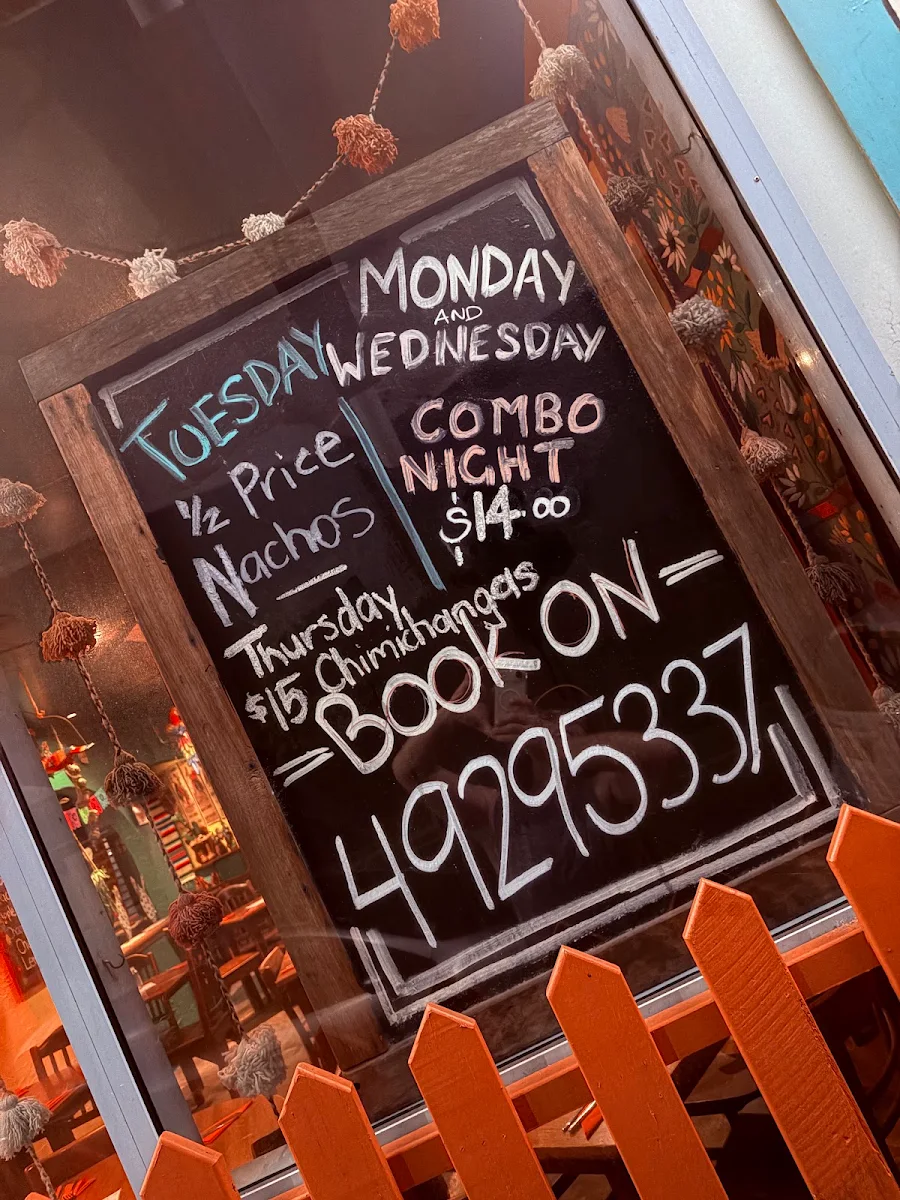 MONDAY
AND
WEDNESDAY
COMBO
NIGHT
$14.00
TUESDAY
1/2 Price
Nachos
Thursday
$15 Chimichangas
BOOK ON
49295337